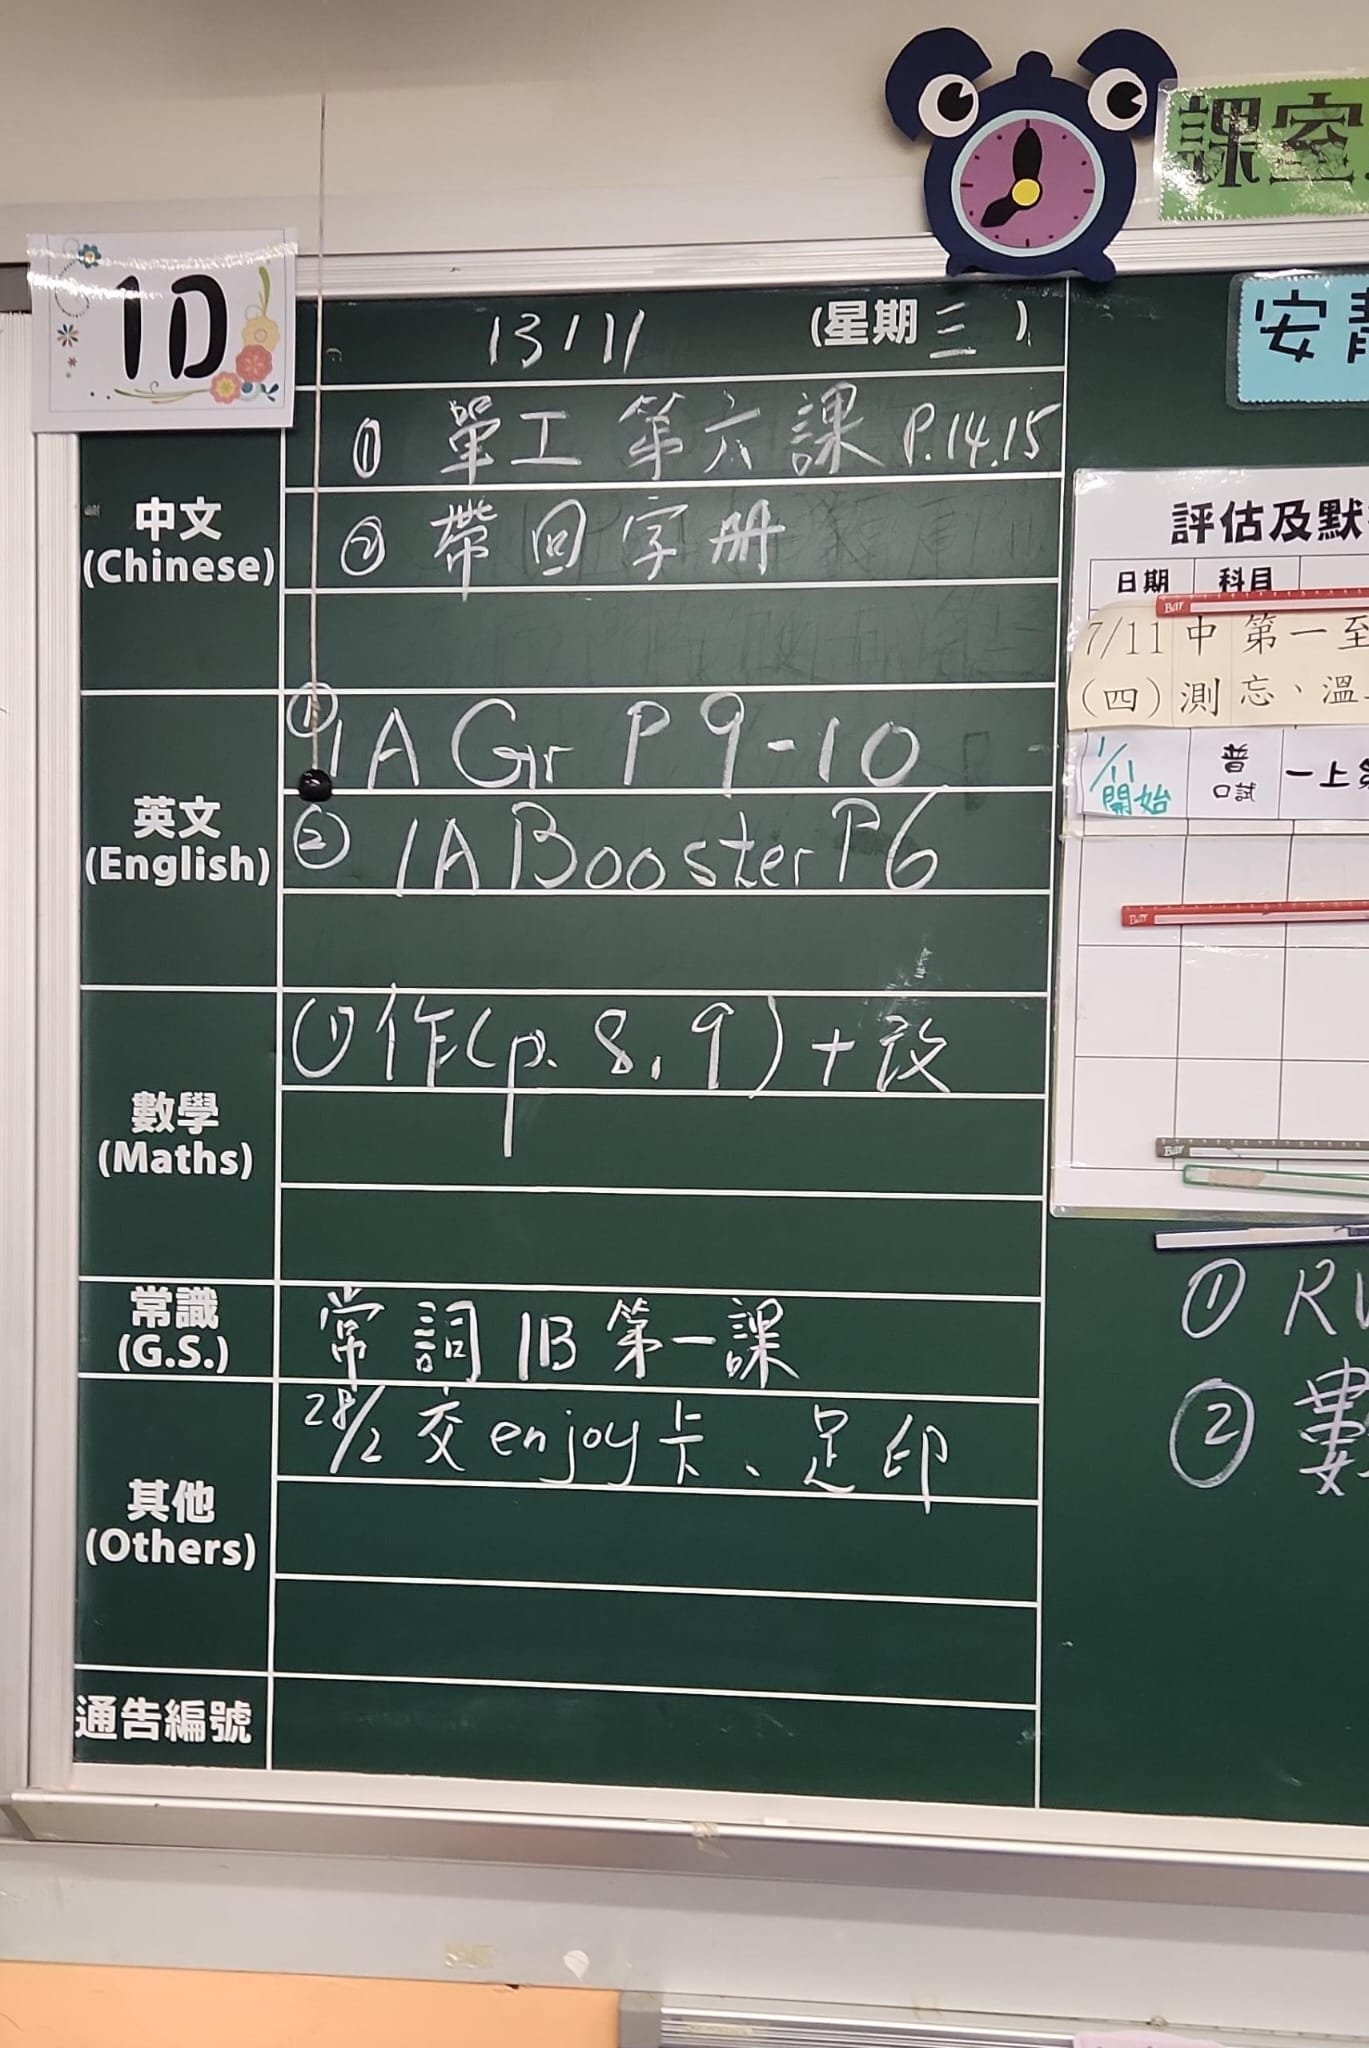 課室
1D
13/11 (星期三)
安
中文
(Chinese)
① 單工第六課 P.14.15
② 帶回字册
英文
(English)
① 1A Gr P9-10
② 1A Booster P6
數學
(Maths)
① 作(p. 8, 9) + 改
常識
(G.S.)
常詞 1B 第一課
其他
(Others)
28/2 交 enjoy卡、足印
通告編號
評估及默
日期 科目
7/11 中 第一至
(四) 測 忘、溫
1/11 開始 普 口試 一上第
Bar
Bar
Bar
① RW
② 數